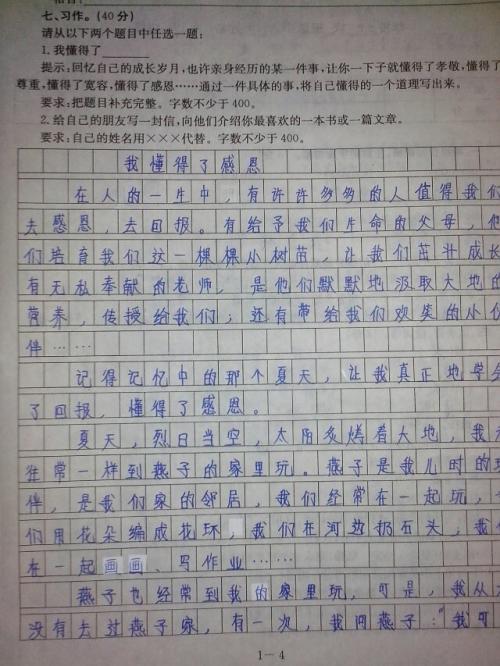 七、习作。(40分)
请从以下两个题目中任选一题：
1.我懂得了
提示：回忆自己的成长岁月，也许亲身经历的某一件事，让你一下子就懂得了孝敬，懂得了
尊重，懂得了宽容，懂得了感恩……通过一件具体的事，将自己懂得的一个道理写出来。
要求：把题目补充完整。字数不少于400。
2.给自己的朋友写一封信，向他们介绍你最喜欢的一本书或一篇文章。
要求：自己的姓名用×××代替。字数不少于400。
我懂得了感恩
在人的一生中，有许许多多的人值得我们
去感恩，去回报。有给予我们生命的父母，他
们培育我们这一棵棵小树苗，让我们茁壮成长
有无私奉献的老师，是他们默默地汲取大地的
营养，传授给我们；还有带给我们欢笑的小伙
伴……
记得记忆中的那个夏天，让我真正地学会
了回报，懂得了感恩。
夏天，烈日当空，太阳炙烤着大地，我
往常一样到燕子的家里玩。燕子是我儿时的
伴，是我们家的邻居，我们经常在一起玩，
们用花朵编成花环，我们在河边扔石头，我
在一起画画、写作业……
燕子也经常到我的家里玩，可是，我从
没有去过燕子家，有一次，我问燕子：“我可
1—4